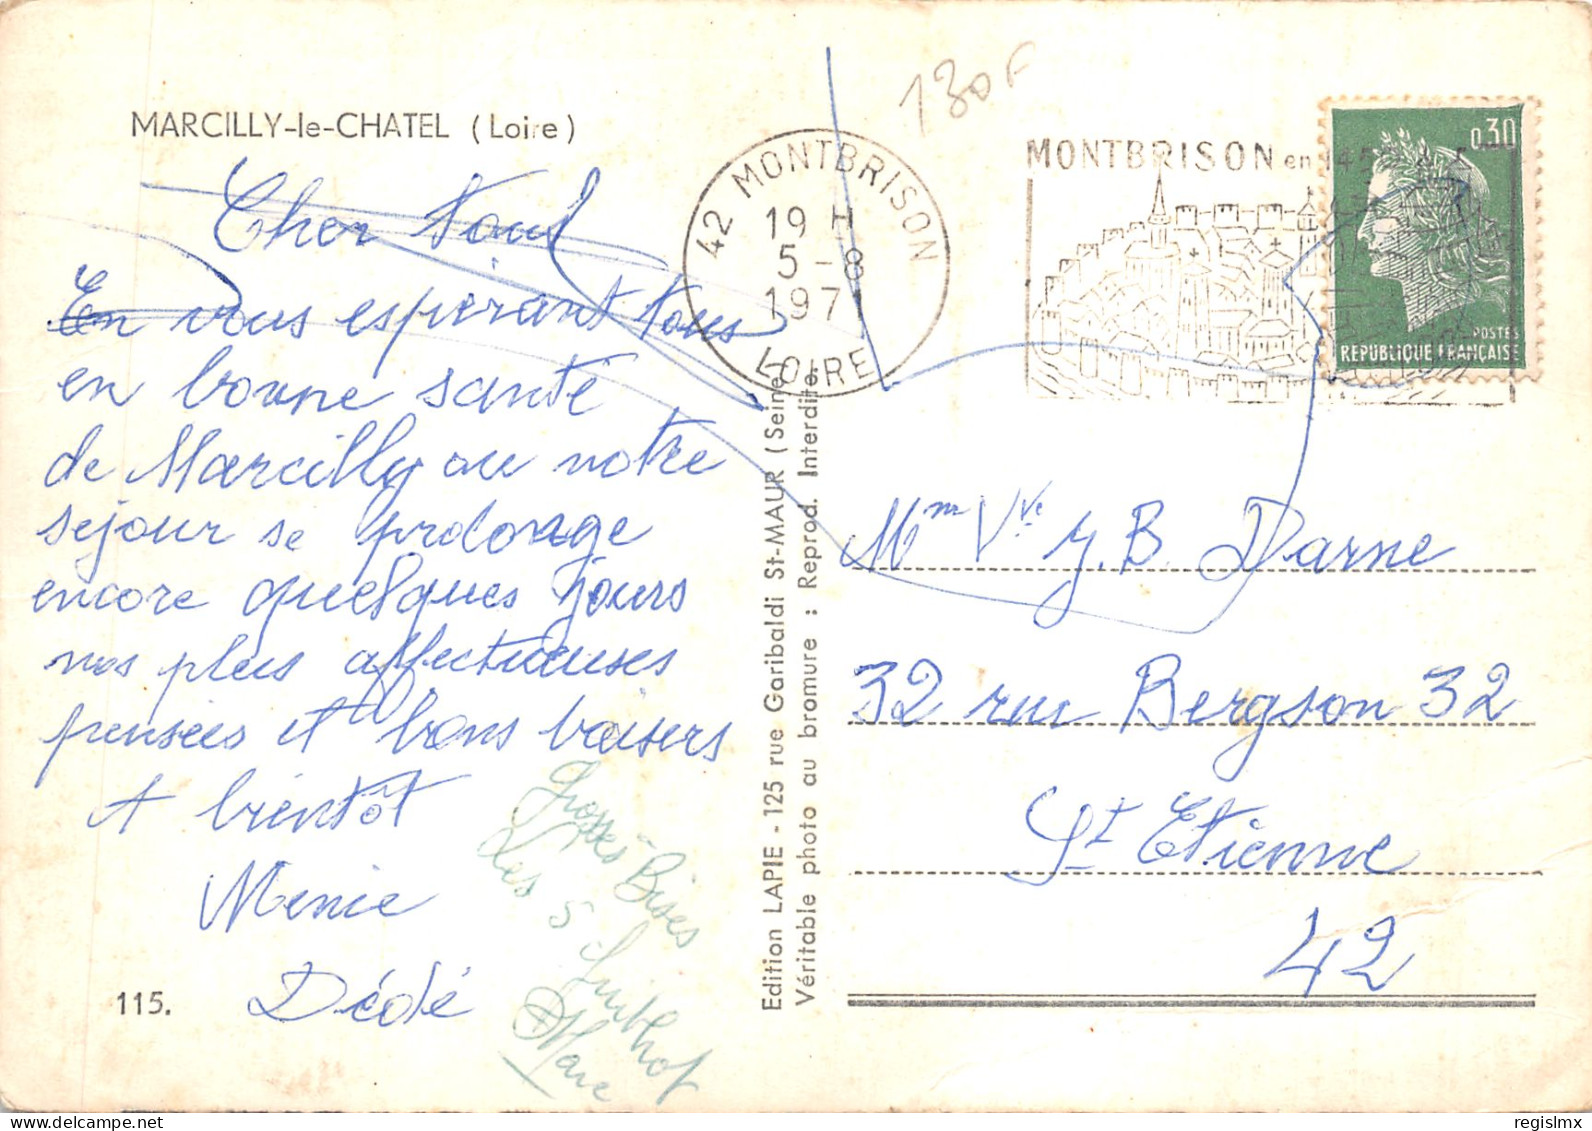 MARCILLY-le-CHATEL (Loire)
Cher tous
En vous espérant tous
en bonne santé
de Marcilly ou notre
séjour se prolonge
encore quelques jours
nos plus affectueuses
pensées et bons baisers
A bientôt
Menie
Dédé
Grosses Bises
Les 5 Guithot
Marc
115.
Edition LAPIE - 125 rue Garibaldi St-MAUR (Seine)
Véritable photo au bromure : Reprod. Interdite.
130F
42 MONTBRISON
19 H
5-8
1971
LOIRE
MONTBRISON en 145
0,30
POSTES
REPUBLIQUE FRANÇAISE
Mme Vve J.B. Darne
32 rue Bergson 32
St Etienne
42
regislmx